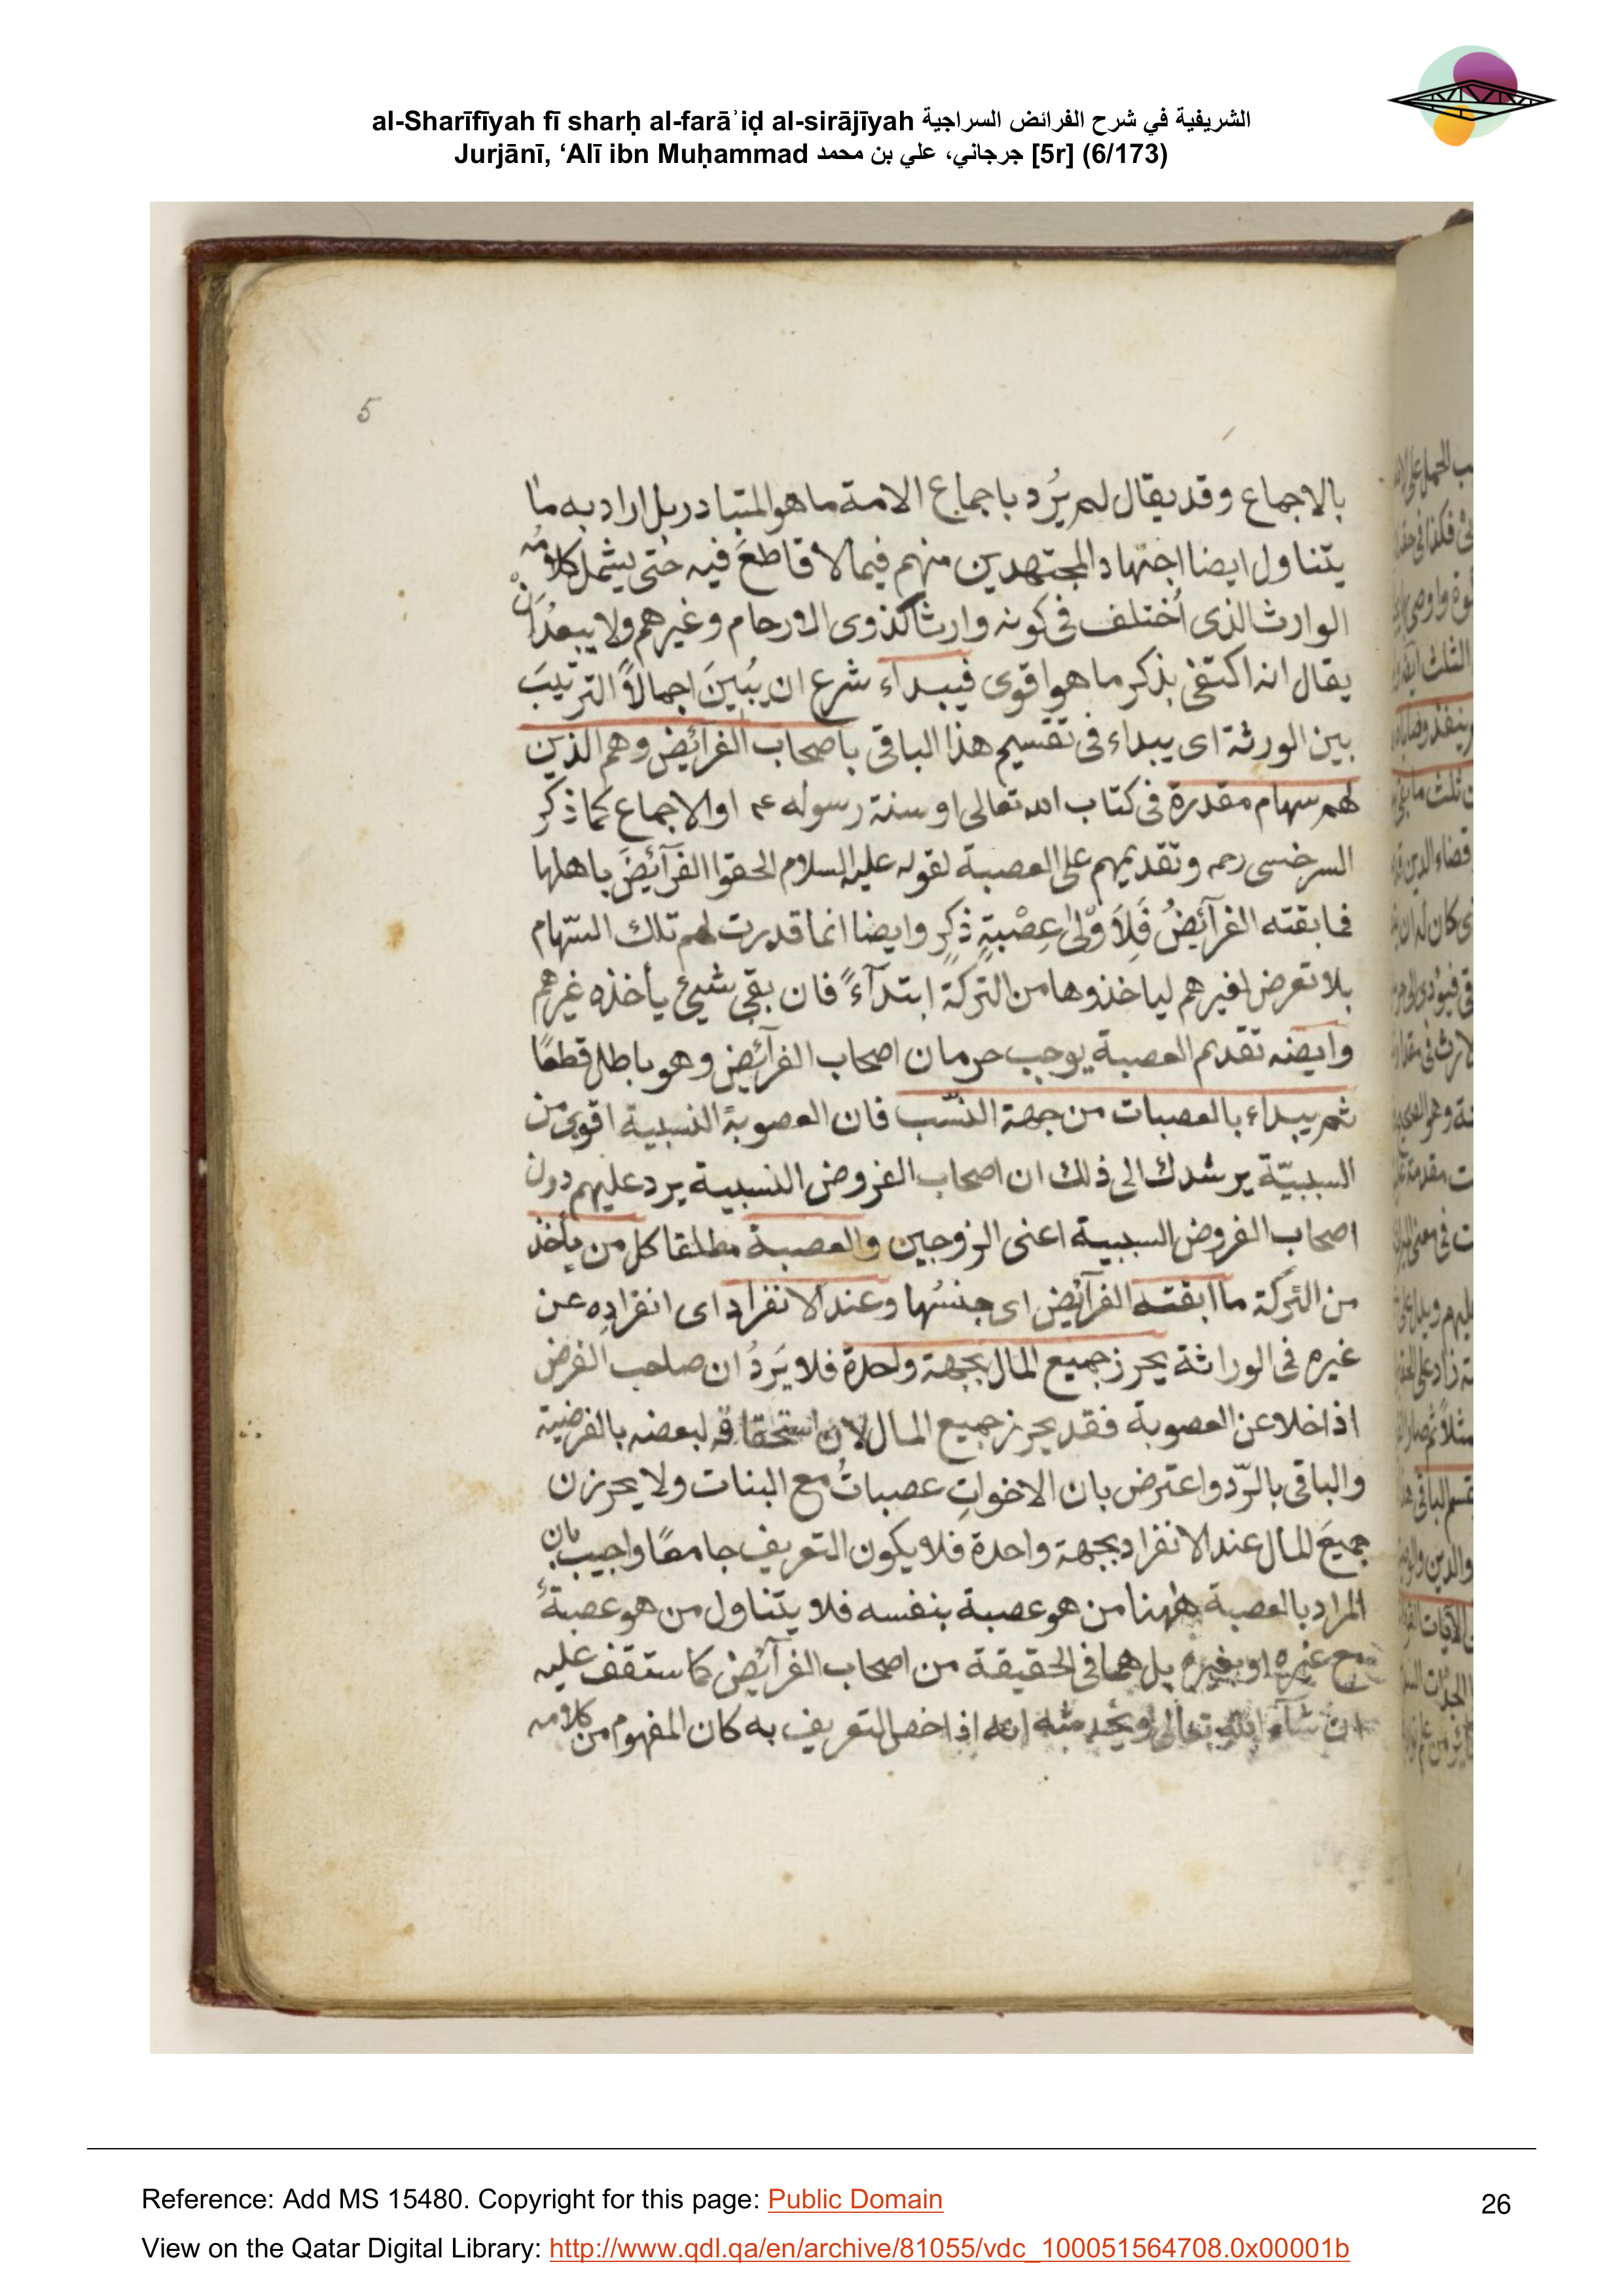 al-Sharīfīyah fī sharḥ al-farāʾiḍ al-sirājīyah الشريفية في شرح الفرائض السراجية
Jurjānī, ‘Alī ibn Muḥammad جرجاني، علي بن محمد [5r] (6/173)
5
بالاجماع وقد يقال لم يُرد باجماع الامة ما هو المتبادر بل اراد به ما
يتناول ايضا اجتهاد المجتهدين منهم فيما لا قاطعَ فيه حتى يشمل كلامه
الوارث الذى اُختلف فى كونه وارثا كذوى الارحام وغيرهم ولا يبعدُ ان
يقال انه اكتفى بذكر ما هو اقوى فيبداء شرع ان يُبينَ اجمالاً الترتيبَ
بين الورثة اى يبداء فى تقسيم هذا الباقى باصحاب الفرآئض وهم الذين
لهم سهام مقدرة فى كتاب الله تعالى او سنة رسوله عم او الاجماع كما ذكر
السرخسى رحمه وتقديمهم على العصبة لقوله عليه السلام الحقوا الفرآئضَ باهلها
فما بقته الفرآئضُ فَلِاَوْلىٰ عِصْبةٍ ذكرٍ وايضا انما قدرت لهم تلك السّهام
بلا تعرض لغيرهم لياخذوها من التركة ابتدآءً فان بقى شيئ يأخذه غيرهم
وايضنه تقديم العصبة يوجب حرمان اصحاب الفرآئض وهو باطل قطعًا
ثم يبداء بالعصبات من جهة النسّب فان العصوبة النسبية اقوى من
السببيّة يرشدك الى ذلك ان اصحاب الفروض النسبية يرد عليهم دون
اصحاب الفروض السببية اعنى الزوجين والعصبة مطلقا كل من يأخذ
من التركة ما ابقته الفرآئض اى جنسُها وعند الانفراد اى انفرادِه عن
غيره فى الوراثة يحرز جميع المال بجهة واحدة فلا يَردُ ان صاحب الفرض
اذا خلا عن العصوبة فقد يحرز جميع المال لان استحقاقه لبعضه بالفرضية
والباقى بالرّد واعترض بان الاخواتِ عصباتٌ مع البنات ولا يحرزن
جميعَ المال عند الانفراد بجهة واحدة فلا يكون التعريف جامعًا واجيب بان
المراد بالعصبة ههنا من هو عصبة بنفسه فلا يتناول من هو عصبةٌ
مع غيره او بغيره بل هما فى الحقيقة من اصحاب الفرآئض كما ستقف عليه
ان شآء الله تعالى انه اذا خص التعريف به كان المفهوم من كلامه
Reference: Add MS 15480. Copyright for this page: Public Domain
26
View on the Qatar Digital Library: http://www.qdl.qa/en/archive/81055/vdc_100051564708.0x00001b